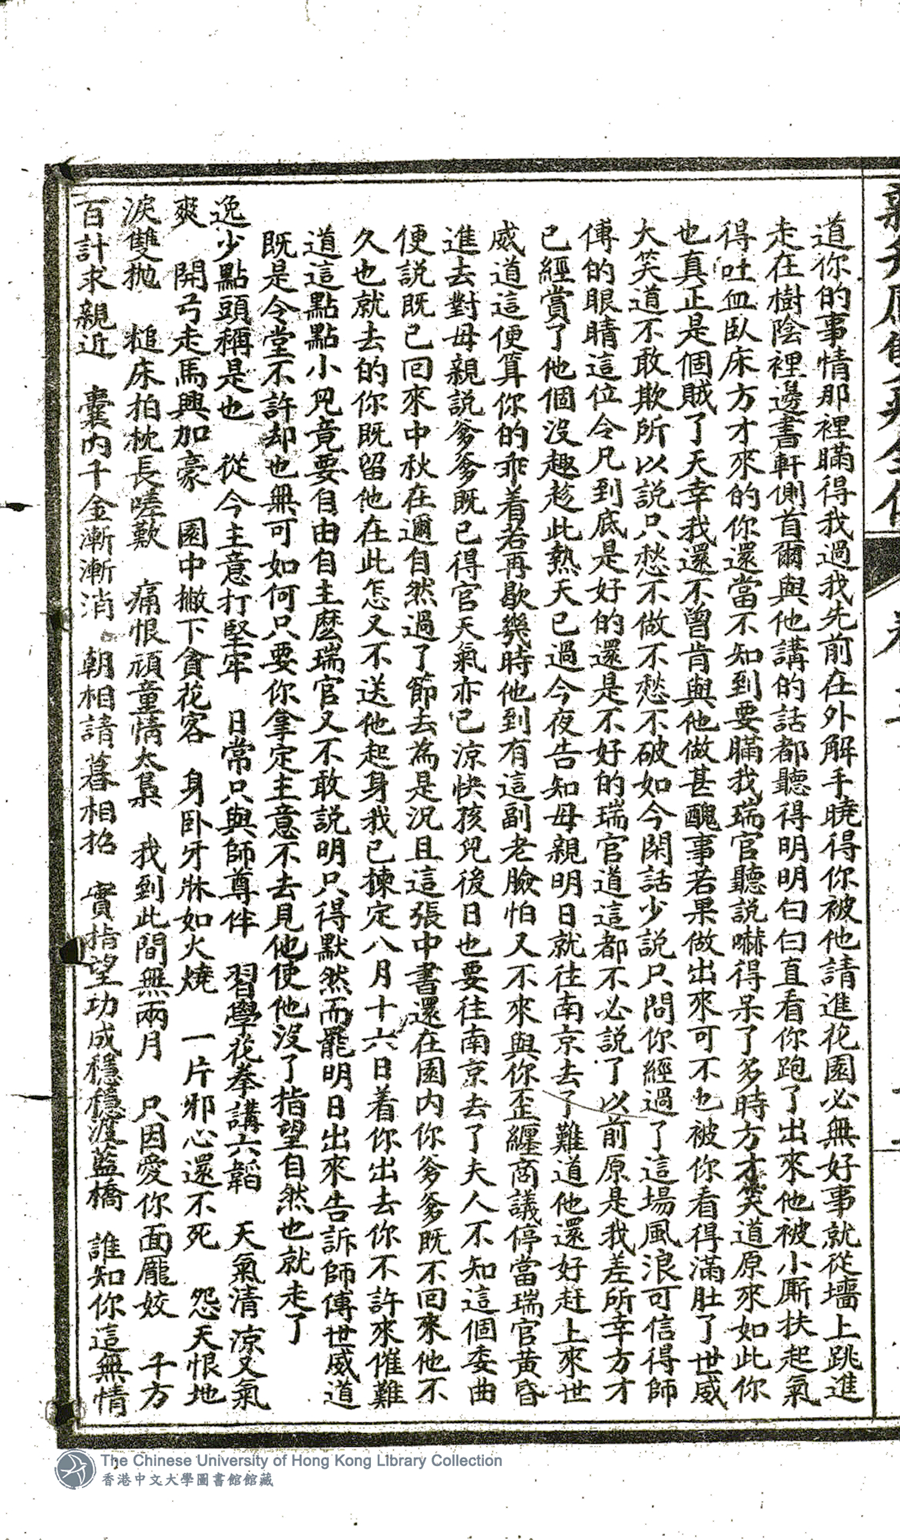 道你的事情那裡瞞得我過我先前在外解手曉得你被他請進花園必無好事就從墻上跳進
走在樹陰裡邊書軒側首爾與他講的話都聽得明明白白直看你跑了出來他被小厮扶起氣
得吐血臥床方才來的你還當不知到要瞞我瑞官聽說嚇得呆了多時方才笑道原來如此你
也真正是個賊了天幸我還不曾肯與他做甚醜事若果做出來可不也被你看得滿肚了世威
大笑道不敢欺所以説只愁不做不愁不破如今閑話少說只問你經過了這場風浪可信得師
傅的眼睛這位令兄到底是好的還是不好的瑞官道這都不必説了以前原是我差所幸方才
已經賞了他個沒趣趁此熱天已過今夜告知母親明日就往南京去了難道他還好赶上來世
威道這便算你的乖着若再歇幾時他到有這副老臉怕又不來與你歪纏商議停當瑞官黃昏
進去對母親説爹爹既已得官天氣亦已涼快孩兒後日也要往南京去了夫人不知這個委曲
便説既已回來中秋在邇自然過了節去為是況且這張中書還在園内你爹爹既不回來他不
久也就去的你既留他在此怎又不送他起身我已揀定八月十六日着你出去你不許來催難
道這點點小兒竟要自由自主麽瑞官又不敢説明只得默然而罷明日出來告訴師傅世威道
既是令堂不許却也無可如何只要你拿定主意不去見他使他沒了指望自然也就走了
逸少點頭稱是也　從今主意打堅牢　日常只與師尊伴　習學花拳講六韜　天氣清涼又氣
爽　開弓走馬興加豪　園中撇下貪花客　身卧牙牀如火燒　一片邪心還不死　怨天恨地
淚雙抛　槌床拍枕長嗟歎　痛恨頑童情太梟　我到此間無兩月　只因愛你面龐姣　千方
百計求親近　囊内千金漸漸消　朝相請暮相招　實指望功成穩穩渡藍橋　誰知你這無情
The Chinese University of Hong Kong Library Collection
香港中文大學圖書館館藏